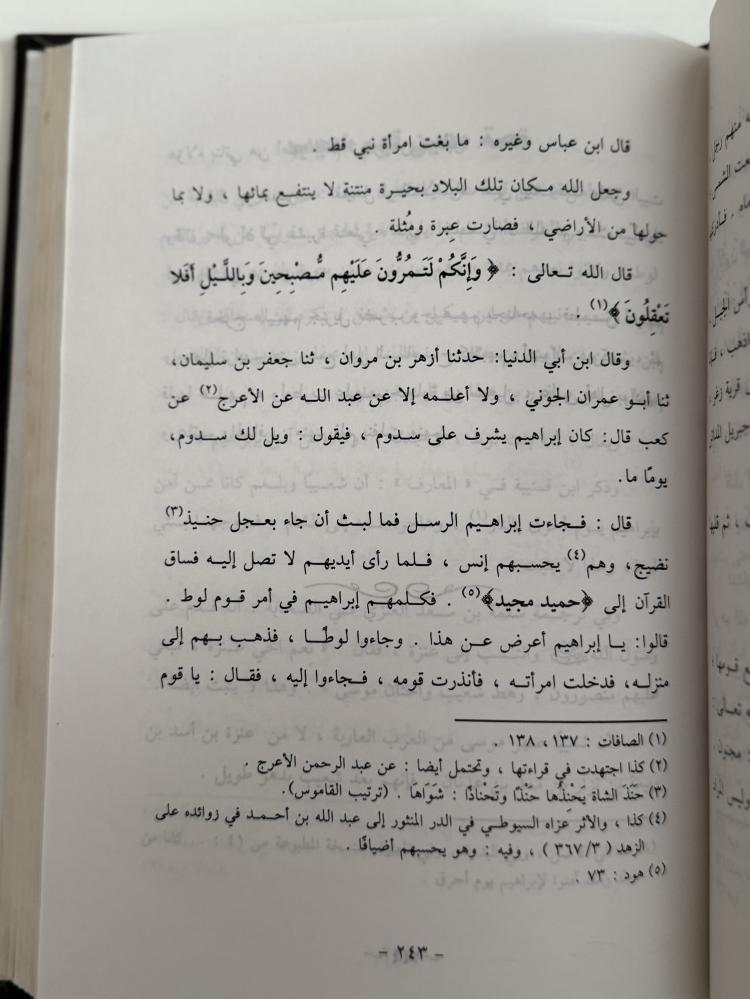 قال ابن عباس وغيره : ما بغت امرأة نبي قط .
وجعل الله مكان تلك البلاد بحيرة منتنة لا ينتفع بمائها ، ولا بما
حولها من الأراضي ، فصارت عِبرة ومُثلة .
قال الله تعالى : ﴿ وَإِنَّكُمْ لَتَمُرُّونَ عَلَيْهِم مُّصْبِحِينَ وَبِاللَّيْلِ أَفَلا
تَعْقِلُونَ ﴾(١) .
وقال ابن أبي الدنيا: حدثنا أزهر بن مروان ، ثنا جعفر بن سليمان،
ثنا أبو عمران الجوني ، ولا أعلمه إلا عن عبد الله عن الأعرج(٢) عن
كعب قال: كان إبراهيم يشرف على سدوم ، فيقول : ويل لك سدوم،
يومًا ما.
قال : فجاءت إبراهيم الرسل فما لبث أن جاء بعجل حنيذ(٣)
نضيج، وهم(٤) يحسبهم إنس ، فلما رأى أيديهم لا تصل إليه فساق
القرآن إلى ﴿حميد مجيد﴾(٥) . فكلمهم إبراهيم في أمر قوم لوط .
قالوا: يا إبراهيم أعرض عن هذا . وجاءوا لوطًا ، فذهب بهم إلى
منزله، فدخلت امرأته ، فأنذرت قومه ، فجاءوا إليه ، فقال : يا قوم
(١) الصافات : ١٣٧، ١٣٨ .
(٢) كذا اجتهدت في قراءتها ، وتحتمل أيضا : عن عبد الرحمن الأعرج .
(٣) حَنَذَ الشاة يَحْنِذُها حَنْذًا وتَحْناذًا : شَوَاهَا . (ترتيب القاموس).
(٤) كذا ، والأثر عزاه السيوطي في الدر المنثور إلى عبد الله بن أحمد في زوائده على
الزهد ( ٣/ ٣٦٧ ) ، وفيه : وهو يحسبهم أضيافًا .
(٥) هود : ٧٣ .
- ٢٤٣ -